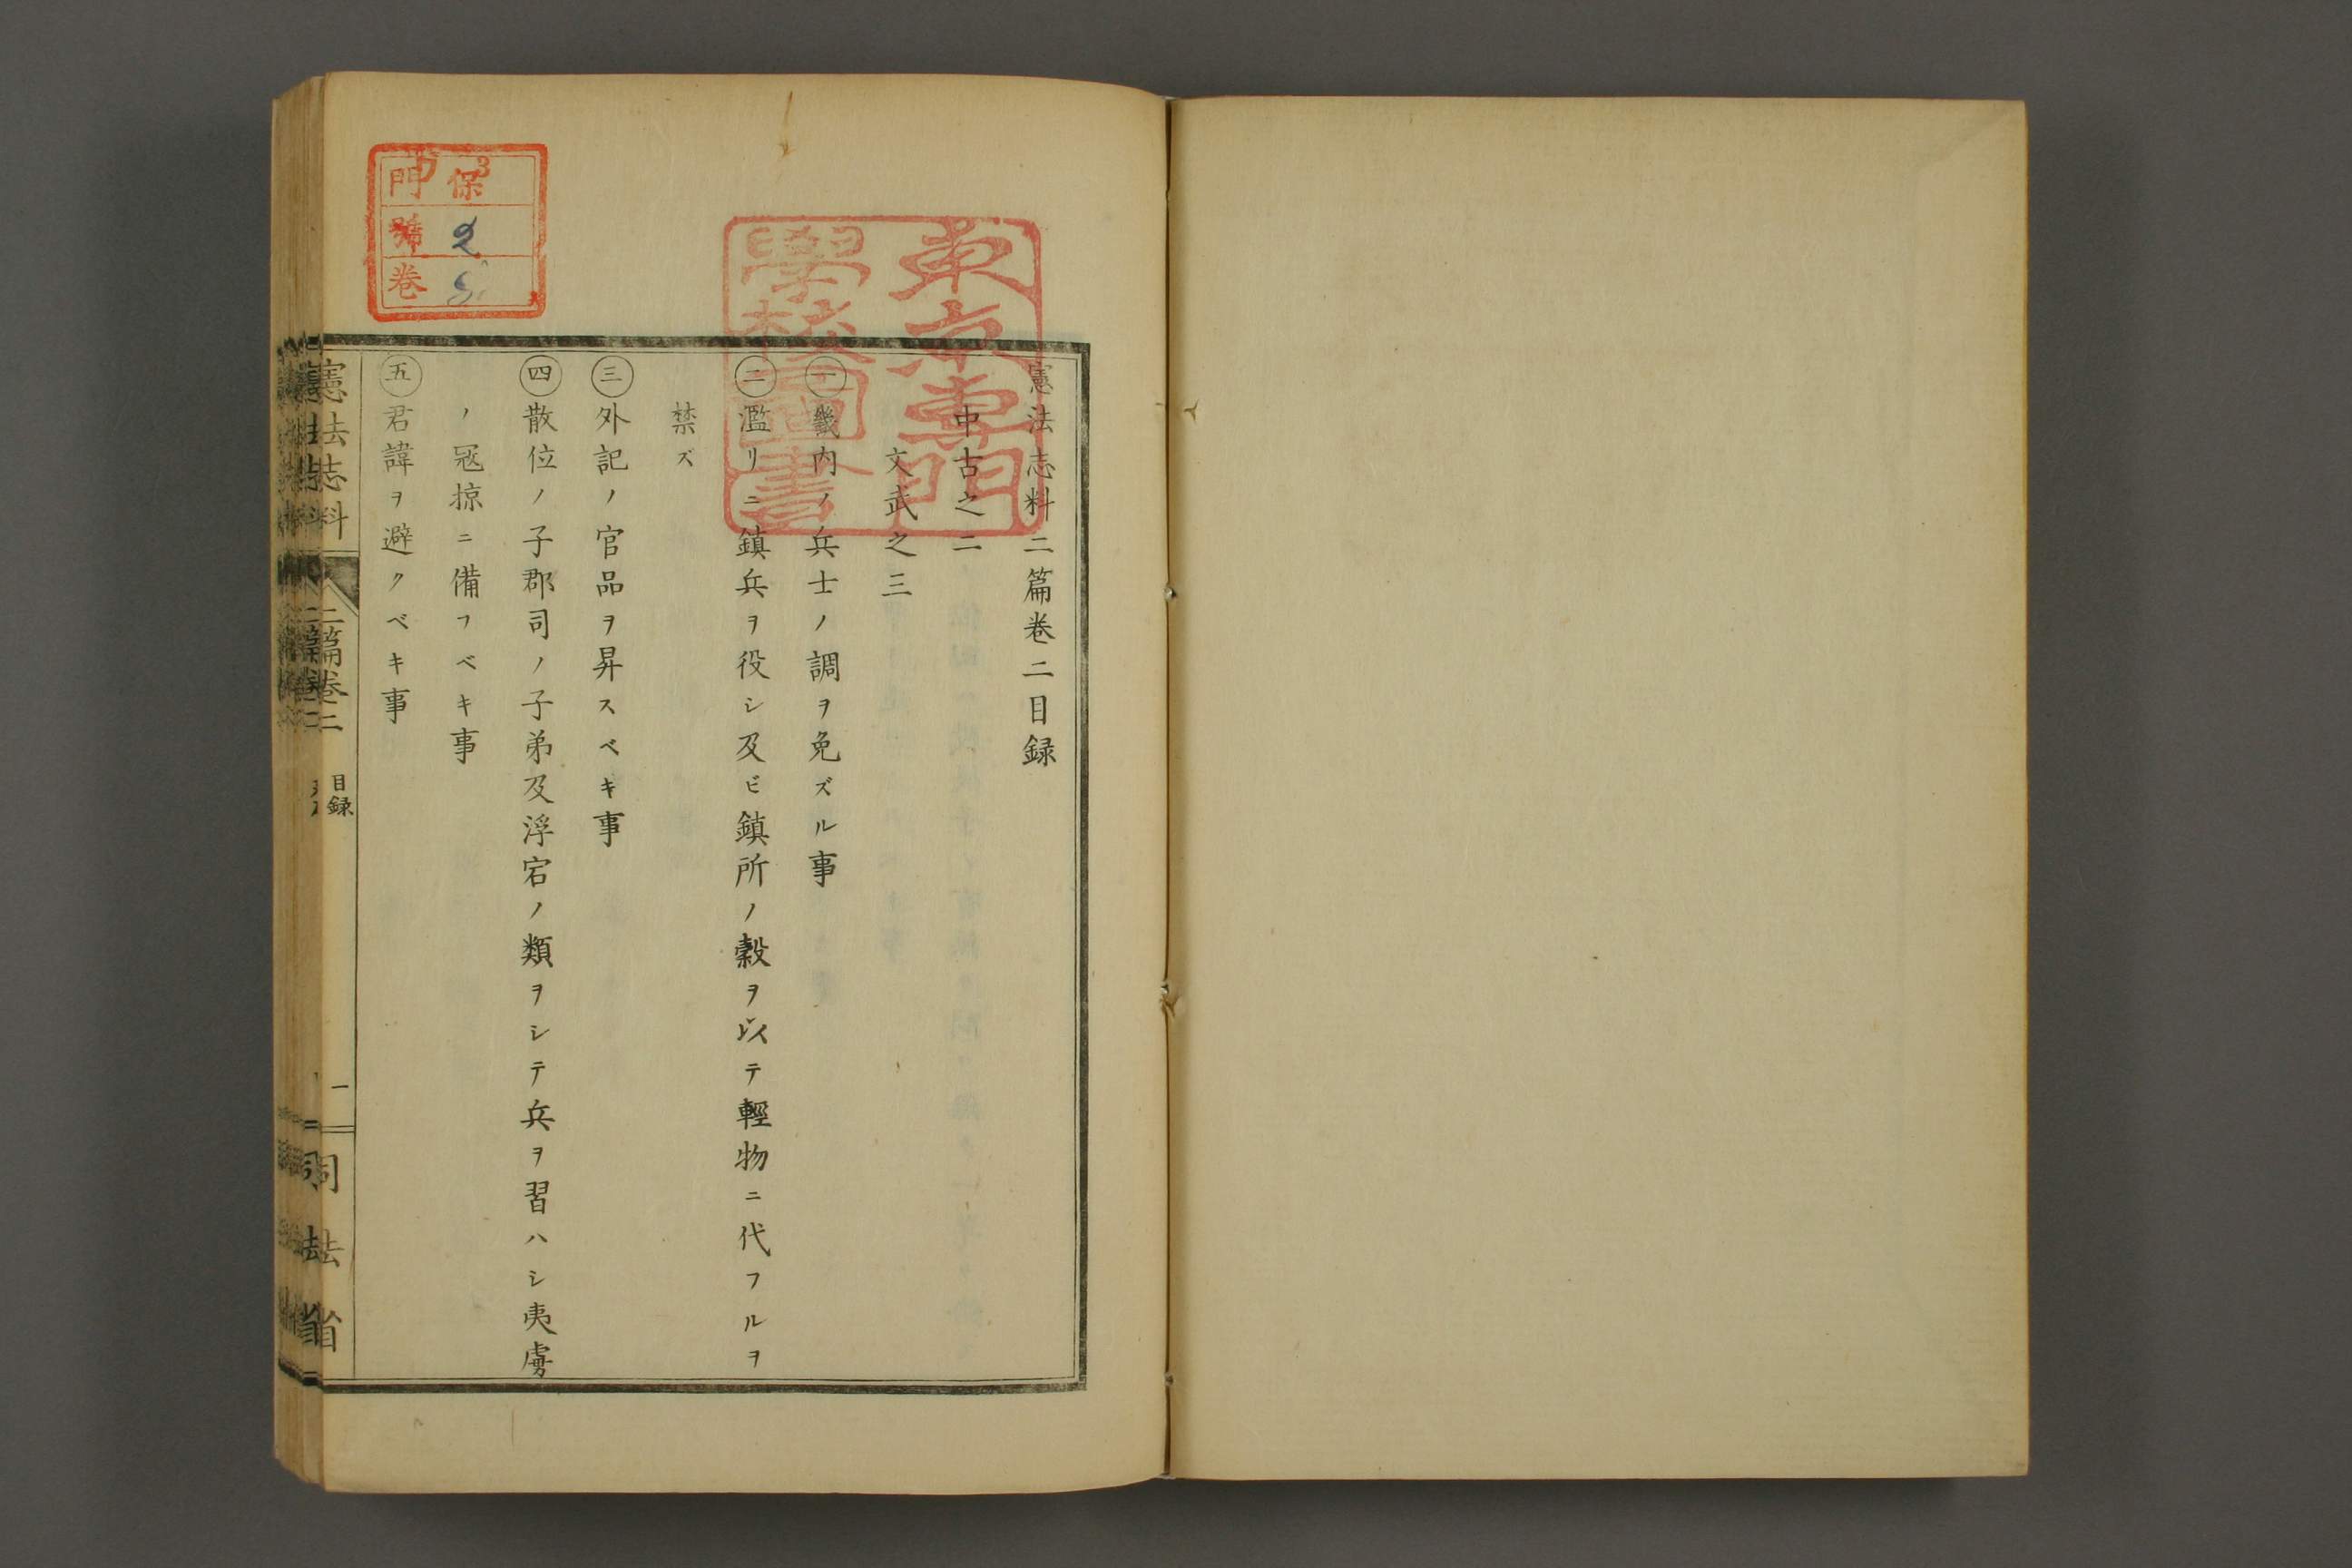 憲法志料二篇卷二目録
中古之二
文武之三
㊀畿内ノ兵士ノ調ヲ免ズル事
㊁濫リニ鎮兵ヲ役シ及ビ鎮所ノ穀ヲ以テ輕物ニ代フルヲ
禁ズ
㊂外記ノ官品ヲ昇スベキ事
㊃散位ノ子郡司ノ子弟及浮宕ノ類ヲシテ兵ヲ習ハシ夷虜
ノ冦掠ニ備フベキ事
㊄君諱ヲ避クベキ事
憲法志料
二篇卷二
目録
一
司法省
東京專門
學校圖書
門 保
號 2
卷